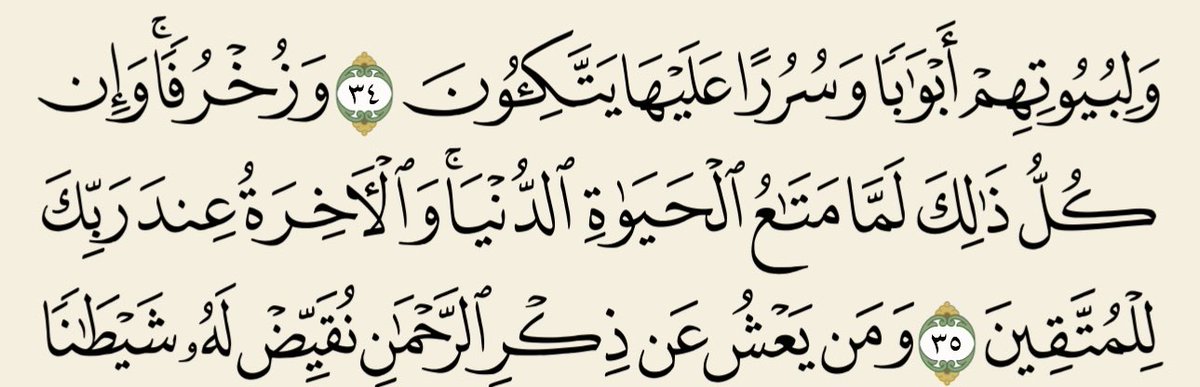 وَلِبُيُوتِهِمْ أَبْوَٰبًا وَسُرُرًا عَلَيْهَا يَتَّكِـُٔونَ ٣٤ وَزُخْرُفًا ۚ وَإِن
كُلُّ ذَٰلِكَ لَمَّا مَتَـٰعُ ٱلْحَيَوٰةِ ٱلدُّنْيَا ۚ وَٱلْـَٔاخِرَةُ عِندَ رَبِّكَ
لِلْمُتَّقِينَ ٣٥ وَمَن يَعْشُ عَن ذِكْرِ ٱلرَّحْمَـٰنِ نُقَيِّضْ لَهُۥ شَيْطَـٰنًا